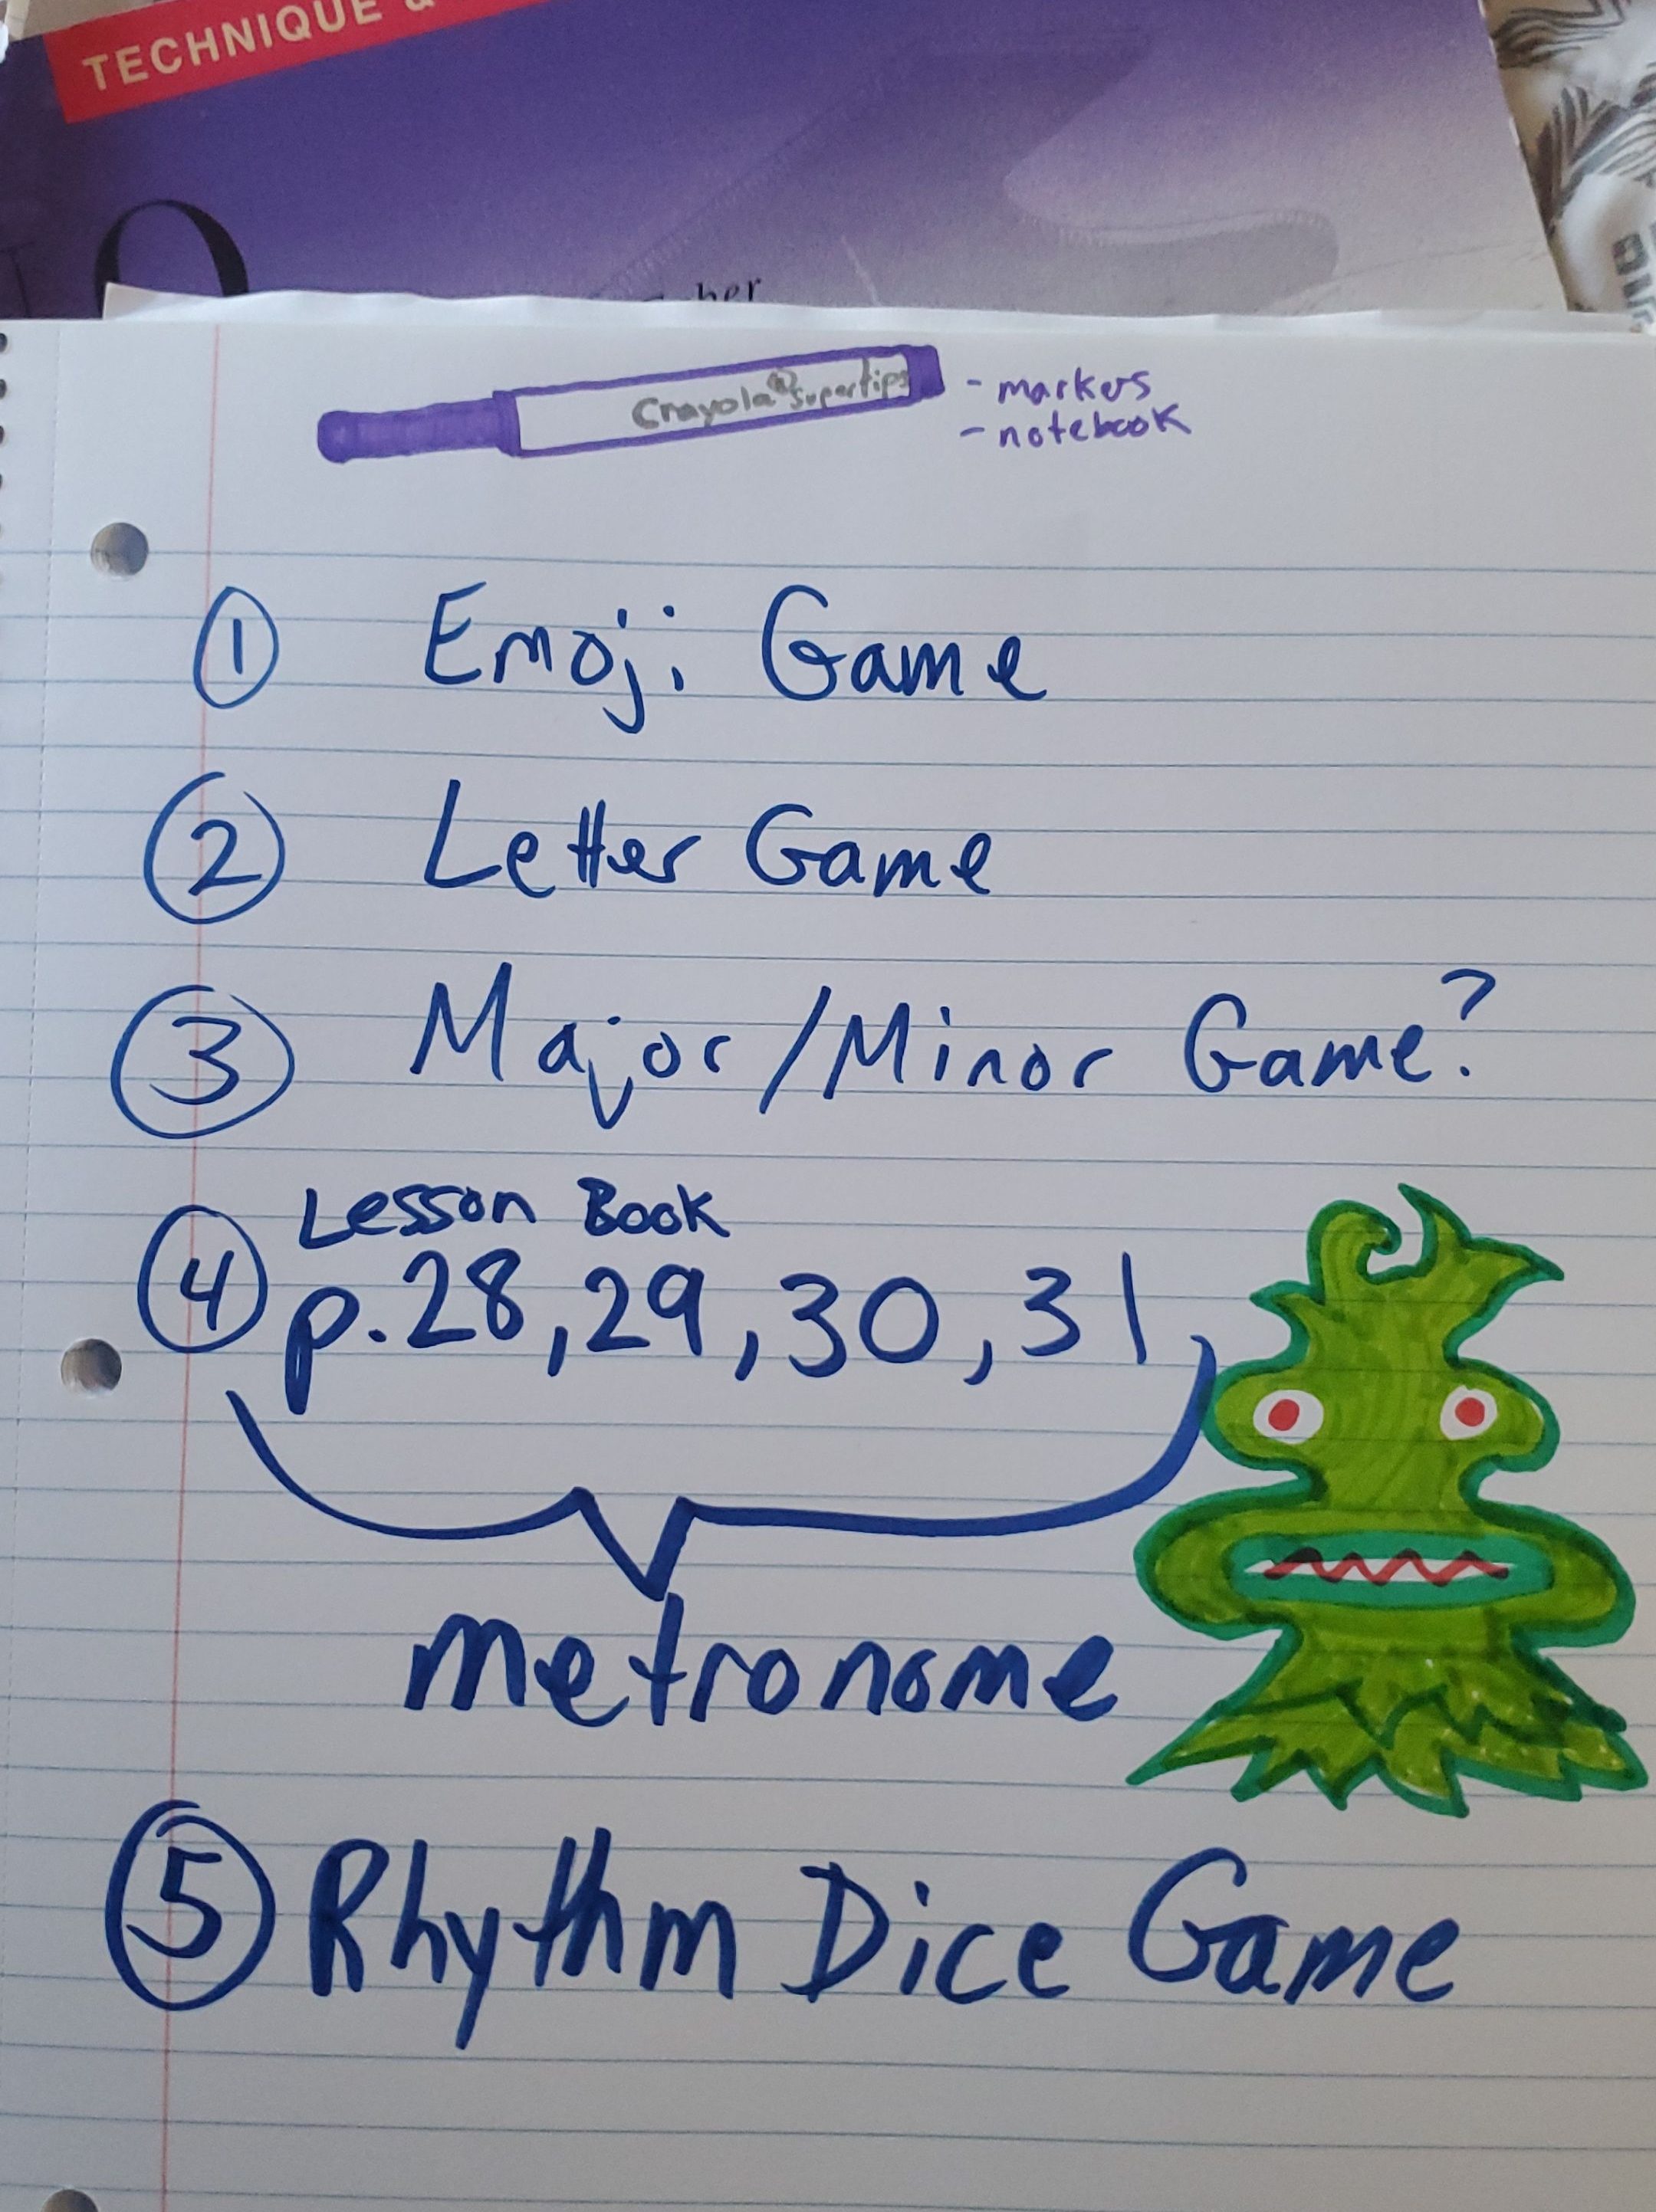 TECHNIQUE &
O
Crayola® Supertips
- markers
- notebook
1 Emoji Game
2 Letter Game
3 Major/Minor Game?
Lesson Book
4 p.28,29,30,31
metronome
5 Rhythm Dice Game